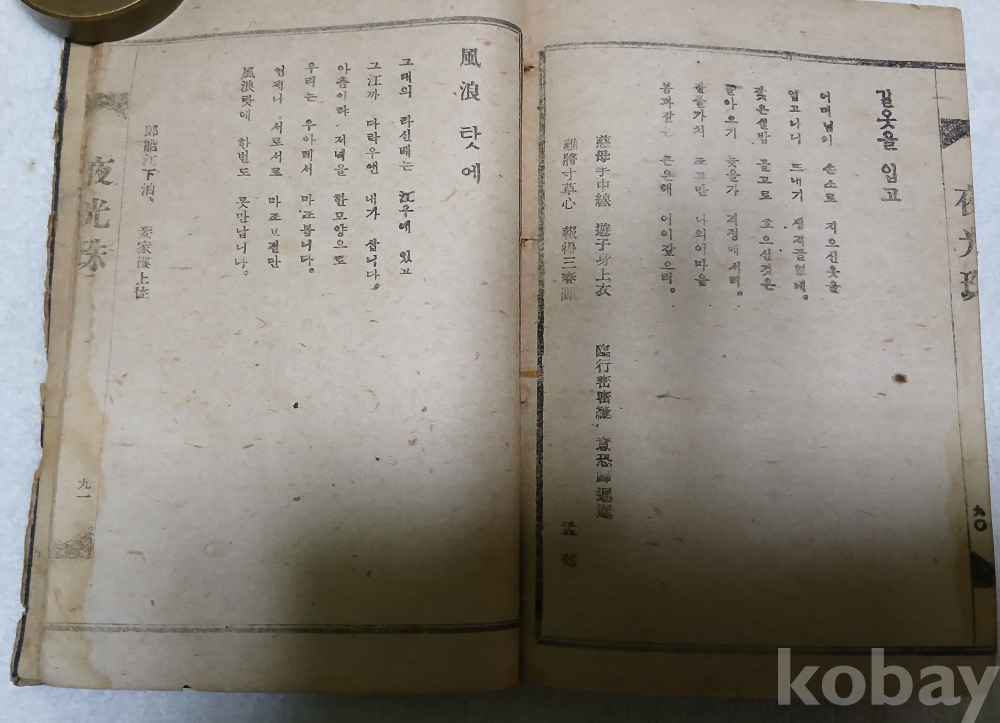 夜光珠
九〇
길옷을 입고
어머님이 손소로 지으신옷을
입고나니 뜨내기
잦은실밥 골고로 호으신것은
돌아으기 늦을가 걱정에서리。
잔풀가치 조그만 나의이마음
봄과같은 큰은혜 어이갚으리。
慈母手中線 遊子身上衣 臨行密密縫 意恐歸遲遲
難將寸草心 報得三春暉 孟郊
風浪탓에
그대의 라신데는 江우에 있고
그江까 다락우엔 내가 삽니다。
아츰이라 저녁을 한모양으로
우리는 우아레서 마조봅니다。
언제나 서로서로 마조보것만
風浪탓에 한번도 못만납니다。
郎臨江下泊、 妾家樓上住
夜光珠
九一
kobay